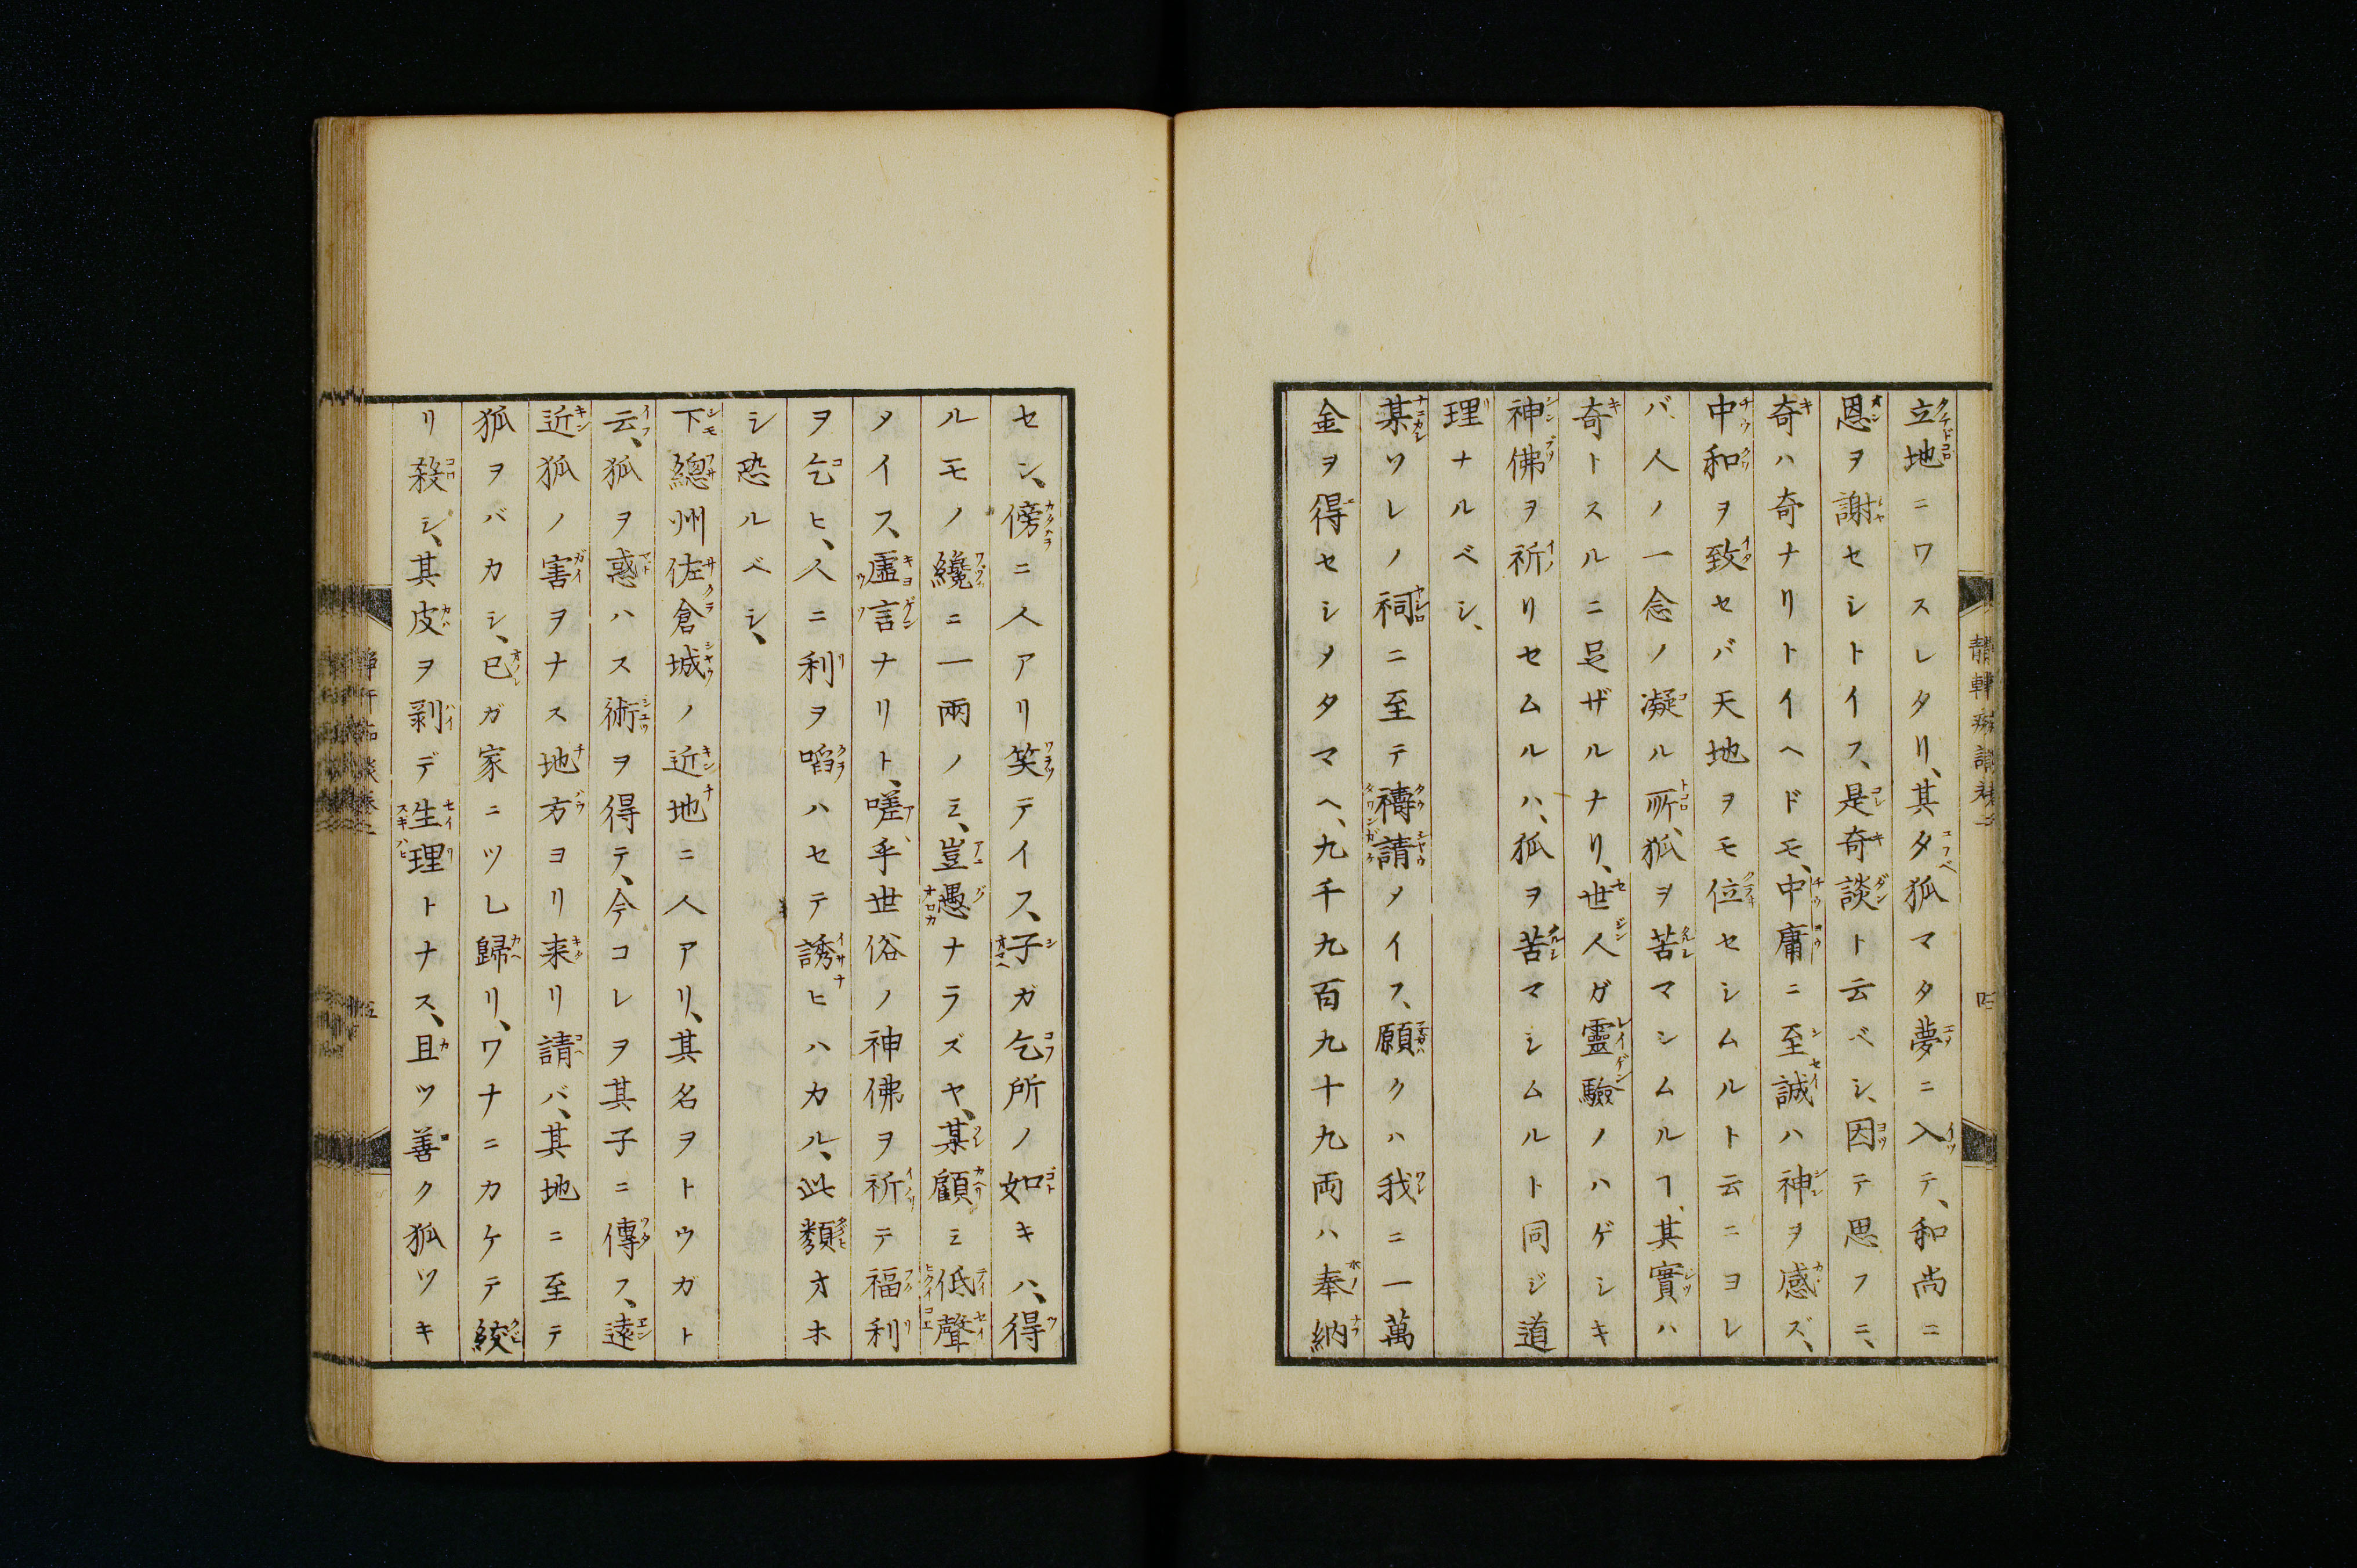 立地ニワスレタリ、其夕狐マタ夢ニ入テ、和尚ニ
恩ヲ謝セシトイフ、是奇談ト云ベシ、因テ思フニ、
奇ハ奇ナリトイヘドモ、中庸ニ至誠ハ神ヲ感ズ、
中和ヲ致セバ天地ヲモ位セシムルト云ニヨレ
バ、人ノ一念ノ凝ル所、狐ヲ苦マシムルヿ、其實ハ
奇トスルニ足ザルナリ、世人ガ靈驗ノハゲシキ
神佛ヲ祈リセムルハ、狐ヲ苦マシムルト同ジ道
理ナルベシ、
某ソレノ祠ニ至テ禱請メイフ、願クハ我ニ一萬
金ヲ得セシメタマヘ、九千九百九十九両ハ奉納
セン、傍ニ人アリ笑テイス、子ガ乞所ノ如キハ、得
ルモノ纔ニ一兩ノミ、豈愚ナラズヤ、某顧ミ低聲
メイス、虛言ナリト、嗟乎世俗ノ神佛ヲ祈テ福利
ヲ乞ヒ、人ニ利ヲ啗ハセテ誘ヒハカル、此類オホ
シ恐ルベシ、
下總州佐倉城ノ近地ニ人アリ、其名ヲトウガト
云、狐ヲ惑ハス術ヲ得テ、今コレヲ其子ニ傳フ、遠
近狐ノ害ヲナス地方ヨリ来リ請バ、其地ニ至テ
狐ヲバカシ、已ガ家ニツレ歸リ、ワナニカケテ絞
リ殺シ、其皮ヲ剥デ生理トナス、且ツ善ク狐ツキ